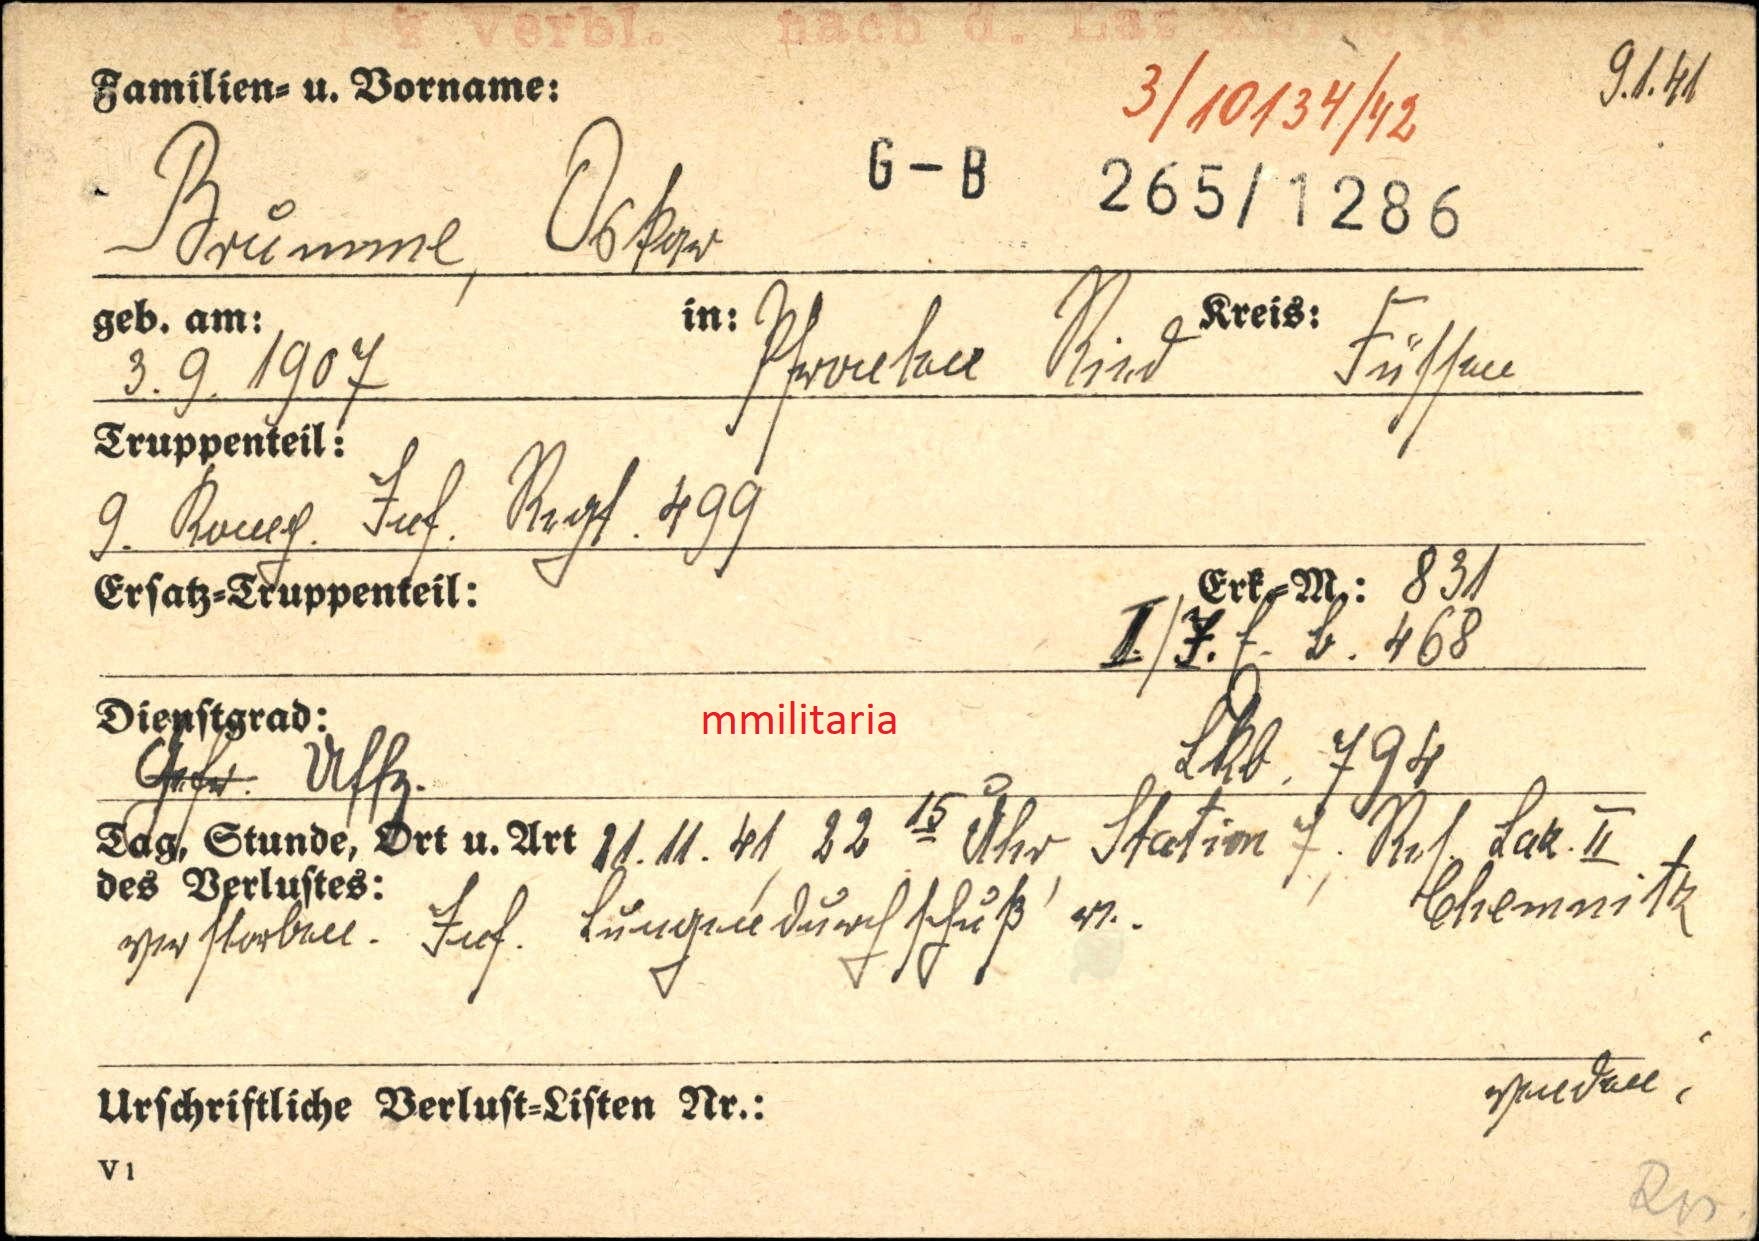 Verbl. nach d.
Familien- u. Vorname:
3/10134/42
9.1.41
G-B 265/1286
Brumme, Oskar
geb. am: in: Kreis:
3.9.1907 Pfronten Ried Füssen
Truppenteil:
9. Komp. Inf. Regt. 499
Ersatz-Truppenteil: Erk.-M.: 831
I/J. E. B. 468
Dienstgrad: mmilitaria
Gefr. Uffz. 794
Tag, Stunde, Ort u. Art 21.11.41, 22 15 Uhr Station 7, Res. Laz. II
des Verlustes: Chemnitz
verstorben. Inf. Lungendurchschuß r.
wenden!
Urschriftliche Verlust-Listen Nr.:
V 1